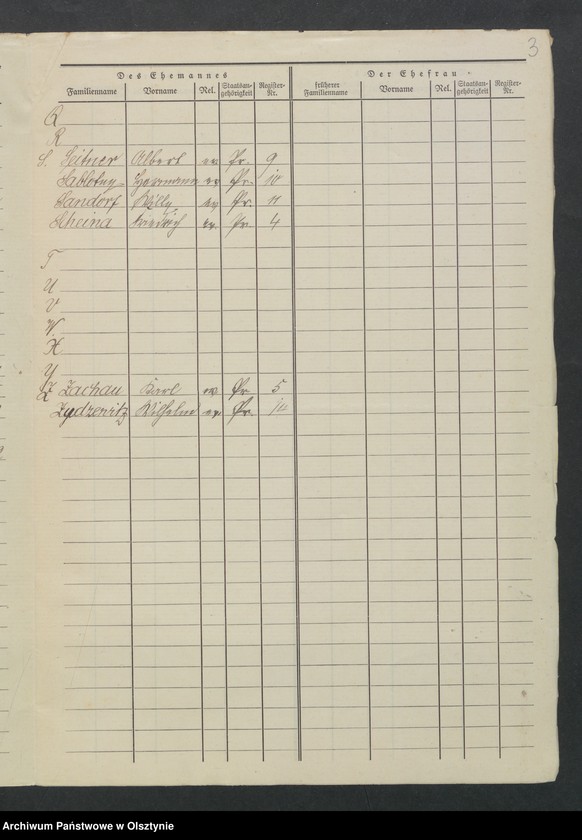 3
Des Ehemannes
Der Ehefrau
Familienname Vorname Rel. Staatsangehörigkeit Register-Nr. früherer Familienname Vorname Rel. Staatsangehörigkeit Register-Nr.
Q
R
S. Seitner Albert ev Pr. 9
Sablotny Hermann ev Pr. 10
Sandorf Willy ev Pr. 11
Scheina Friedrich ev. Pr. 4
T
U
V
W.
X
Y
Z Zachau Karl ev Pr. 5
Zydzewitz Wilhelm ev Pr. 14
Archiwum Państwowe w Olsztynie